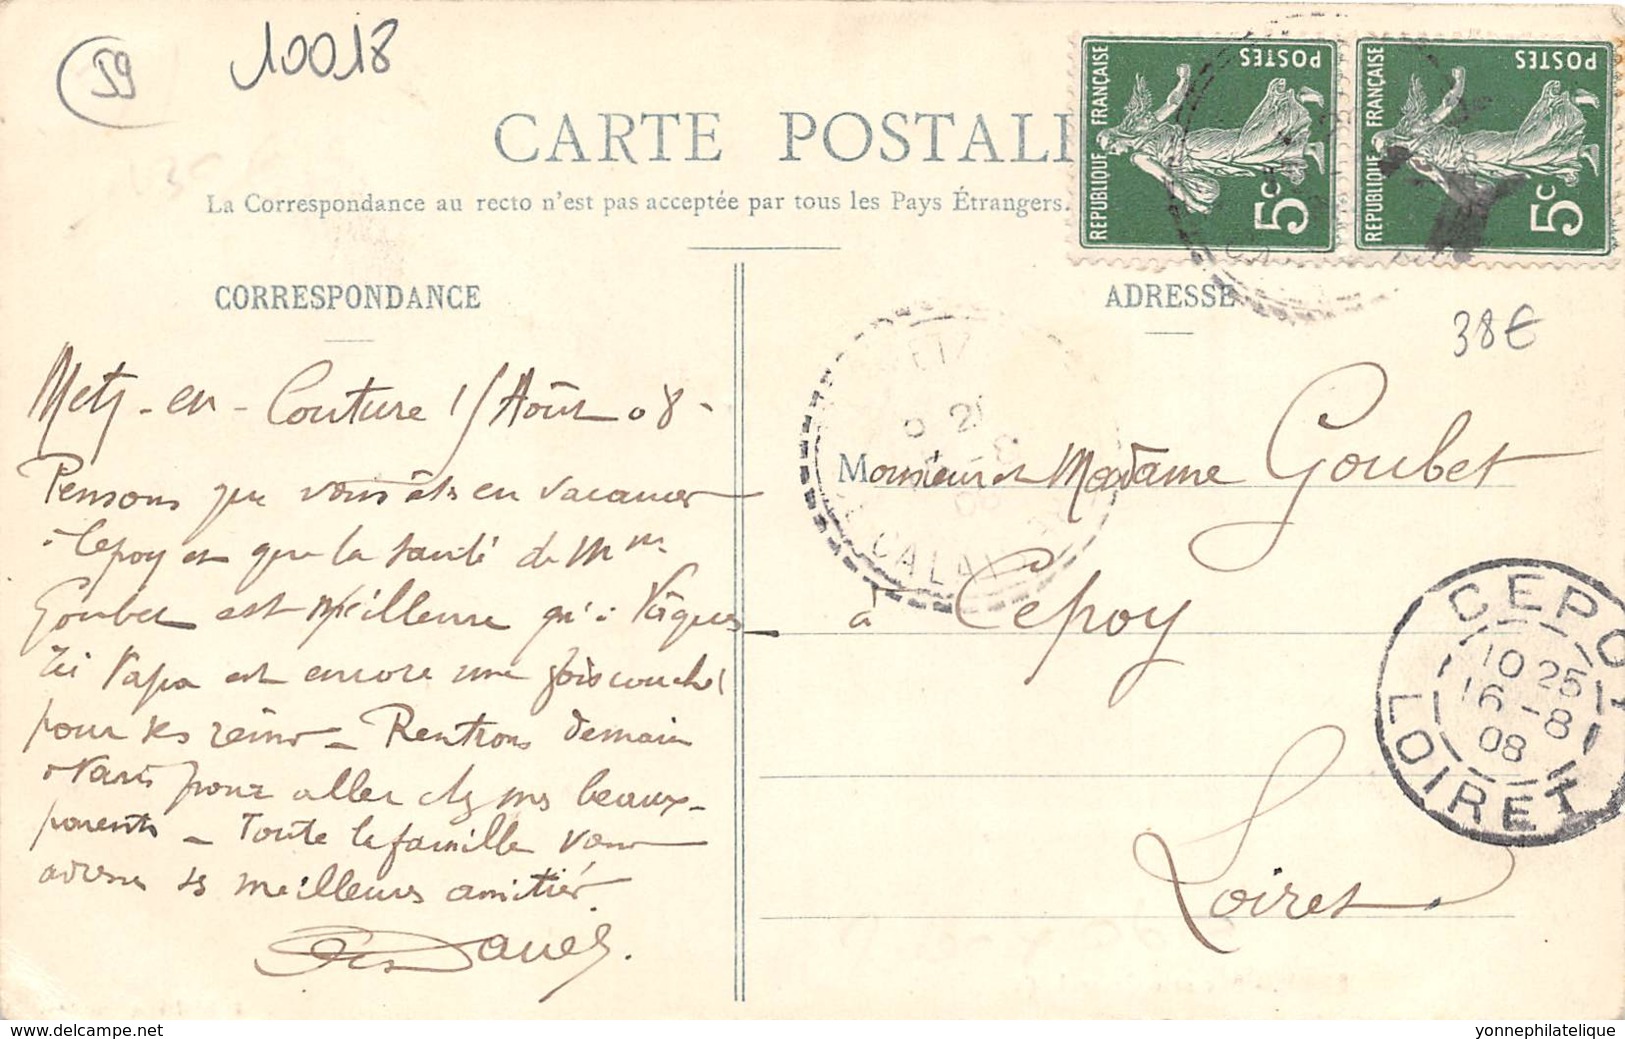 59
10018
CARTE POSTAL
La Correspondance au recto n'est pas acceptée par tous les Pays Étrangers.
REPUBLIQUE FRANÇAISE
POSTES
5c
REPUBLIQUE FRANÇAISE
POSTES
5c
CORRESPONDANCE
ADRESSE
38€
Metz-en-Couture 15 Août 08-
Pensons que vous êtes en vacances
à Cepoy et que la santé de Mme
Goubet est meilleure qu'à Pâques
Ici Papa est encore une fois couché
pour ses reins - Rentrons demain
à Paris pour aller chez mes beaux-
parents - Toute la famille vous
adresse ses meilleures amitiés.
Monsieur et Madame Goubet
à Cepoy
Loiret
CALAIS
CEPOY
10 25
16 -8
08
LOIRET
delcampe.net
yonnephilatelique